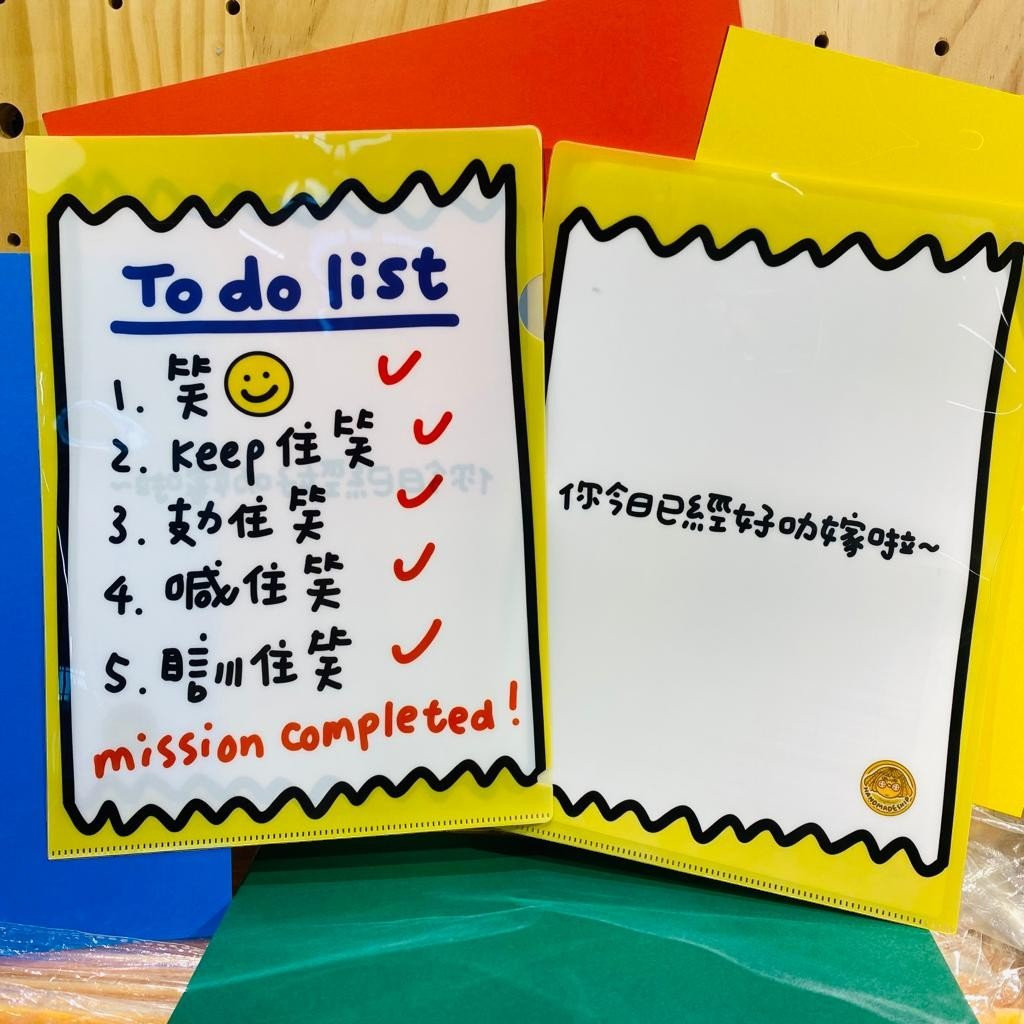 To do list
1. 笑
2. Keep住笑
3. 攰住笑
4. 喊住笑
5. 瞓住笑
mission completed!
你今日已經好叻嫁啦~
HANDMADESHIP